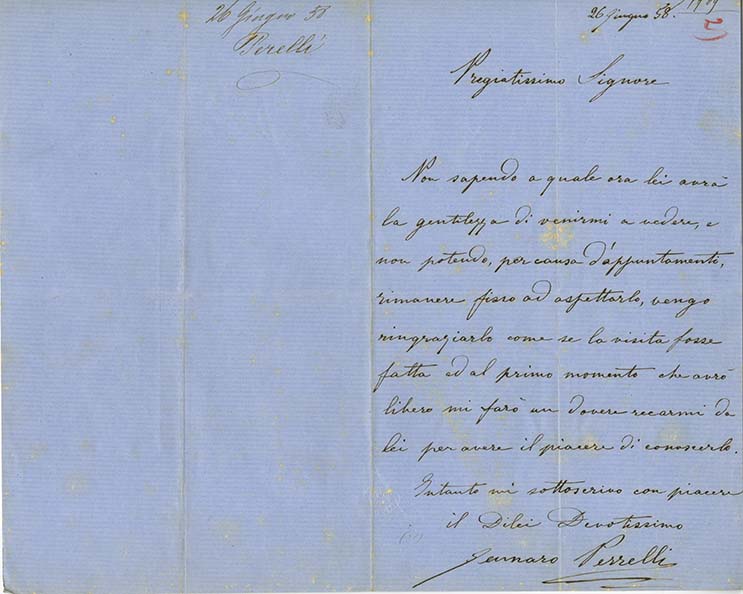 26 Giugno 58
Perelli
26 Giugno 58.
5
Pregiatissimo Signore
Non sapendo a quale ora lei avrà
la gentilezza di venirmi a vedere, e
non potendo, per causa d'appuntamento,
rimanere fisso ad aspettarlo, vengo
ringraziarlo come se la visita fosse
fatta ed al primo momento che avrò
libero mi farò un dovere recarmi da
lei per avere il piacere di conoscerlo.
Intanto mi sottoscrivo con piacere
il Dilei Devotissimo
Gennaro Perrelli